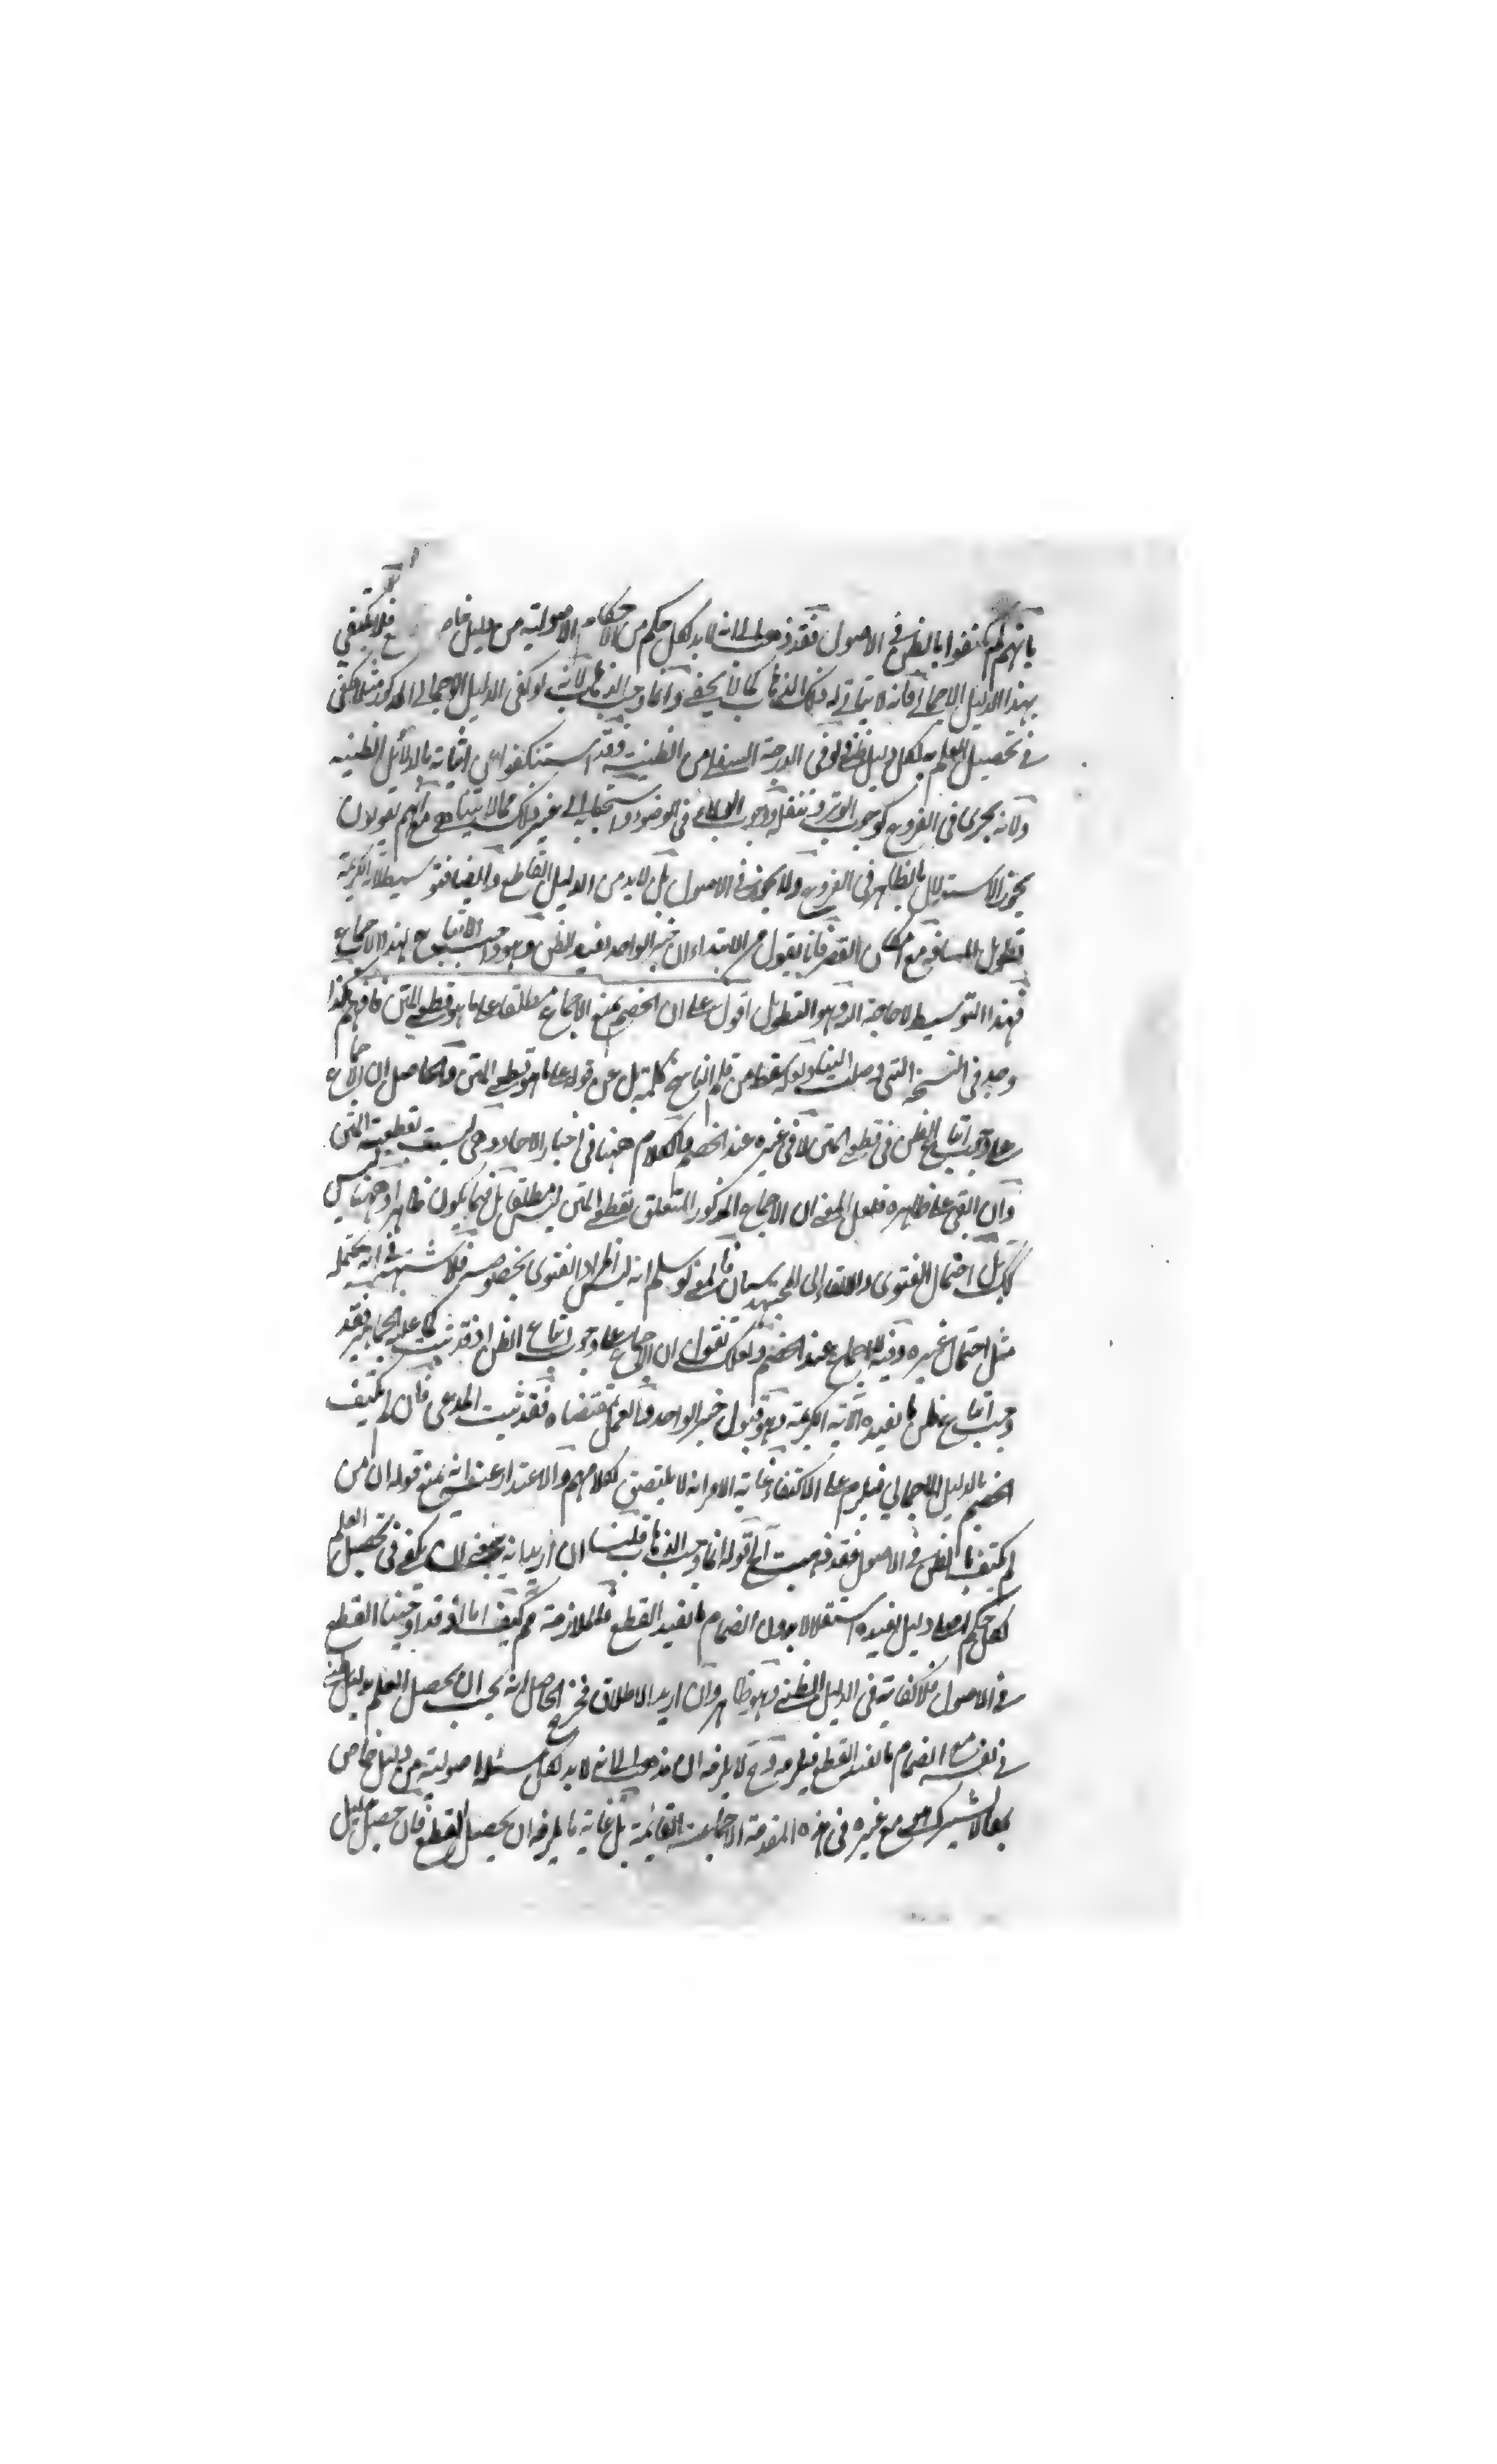 بانهم لم يكتفوا بالظن في الاصول فقد ذهبوا الى انه لا بد لكل حكم من الاحكام الاصولية من دليل خاص فلا يكتفي
بهذا الدليل الاجمالي فانه لا يتأتى له ذلك الذهاب كما لا يخفى وانما وجب الذهاب لانه لو كفى الدليل الاجمالي المذكور مثلا لكفى
في تحصيل العلم به لكل دليل ظني ولو في الدرجة السفلى من الظنية وقد استنكفوا عن اثباته بالدلائل الظنية
ولانه يجري في الفروع كوجوب الوتر وتنفله ووجوب الولاء في الوضوء واستحبابه الى غير ذلك مما لا يتناهى مع انهم يقولون
يجوز الاستدلال بالظاهر في الفروع ولا يجوز في الاصول بل لا بد من الدليل القاطع وايضا فتوسيط الاية الكريمة
تطويل للمسافة مع امكان القصر فانا نقول من الابتداء ان خبر الواحد يفيد الظن وهو واجب الاتباع بهذا الاجماع
فهذا التوسيط لا حاجة اليه وهو التطويل اقول على ان الخصم يمنع الاجماع مطلقا على ما هو قطعي المتن فافهم هكذا
وجد في النسخة التي وصلت الينا ولعله سقط من قلم الناسخ كلمة بل عن قوله على ما هو قطعي المتن والحاصل ان الاجماع
على وجوب اتباع الظن في قطعي المتن لا في غيره عند الخصم والكلام ههنا في اخبار الاحاد وهي ليست بقطعية المتن
وان ابقي على ظاهره فلعل المعنى ان الاجماع المذكور المتعلق بقطعي المتن ليس مطلقا بل فيما يكون ظاهرا وههنا ليس
كك بل احتمال الفتوى والالقاء الى المجتهد سيان فالمعنى لو سلم انه ليس المراد الفتوى بخصوصه فلا شبهة في انه يحتمله
مثل احتمال غيره وفيه لا اجماع عند الخصم ولعلك تقول ان الاجماع على وجوب اتباع الظن اذ قد ثبت كما عليه الجماهير فقد
وجب اتباع ظن ما يفيده الاية الكريمة وهو قبول خبر الواحد والعمل بمقتضاه فقد ثبت المدعى فان لم يكتف
الخصم بالدليل الاجمالي فيلزم على الاكتفاء غاية الامر انه لا يلتصق بكلامهم والاعتذار عنه انه يمنع قوله ان من
لم يكتف بالظن في الاصول فقد ذهب الى قوله انما وجب الذهاب قلنا ان اريد انه ينبغي ان يكفي في تحصيل العلم
لكل حكم اصولي دليل يفيده استقلالا بدون انضمام ما يفيد القطع فالملازمة مم كيف اما انه قد اوجبنا القطع
في الاصول فلا كفاية في الدليل الظني وهو ظاهر وان اريد الاطلاق فخرج الحاصل انه يجب ان يحصل العلم بدليل ظني
في نفسه مع انضمام ما يفيد القطع فيلزمه وح لا يلزمه ان مذهب الى انه لا بد لكل مسئلة اصولية من دليل خاص
بها لا يشترك مع غيره في هذه المقدمة الاجماعية القائمة بل غاية ما يلزمه ان يحصل القطع فان حصل بدليل